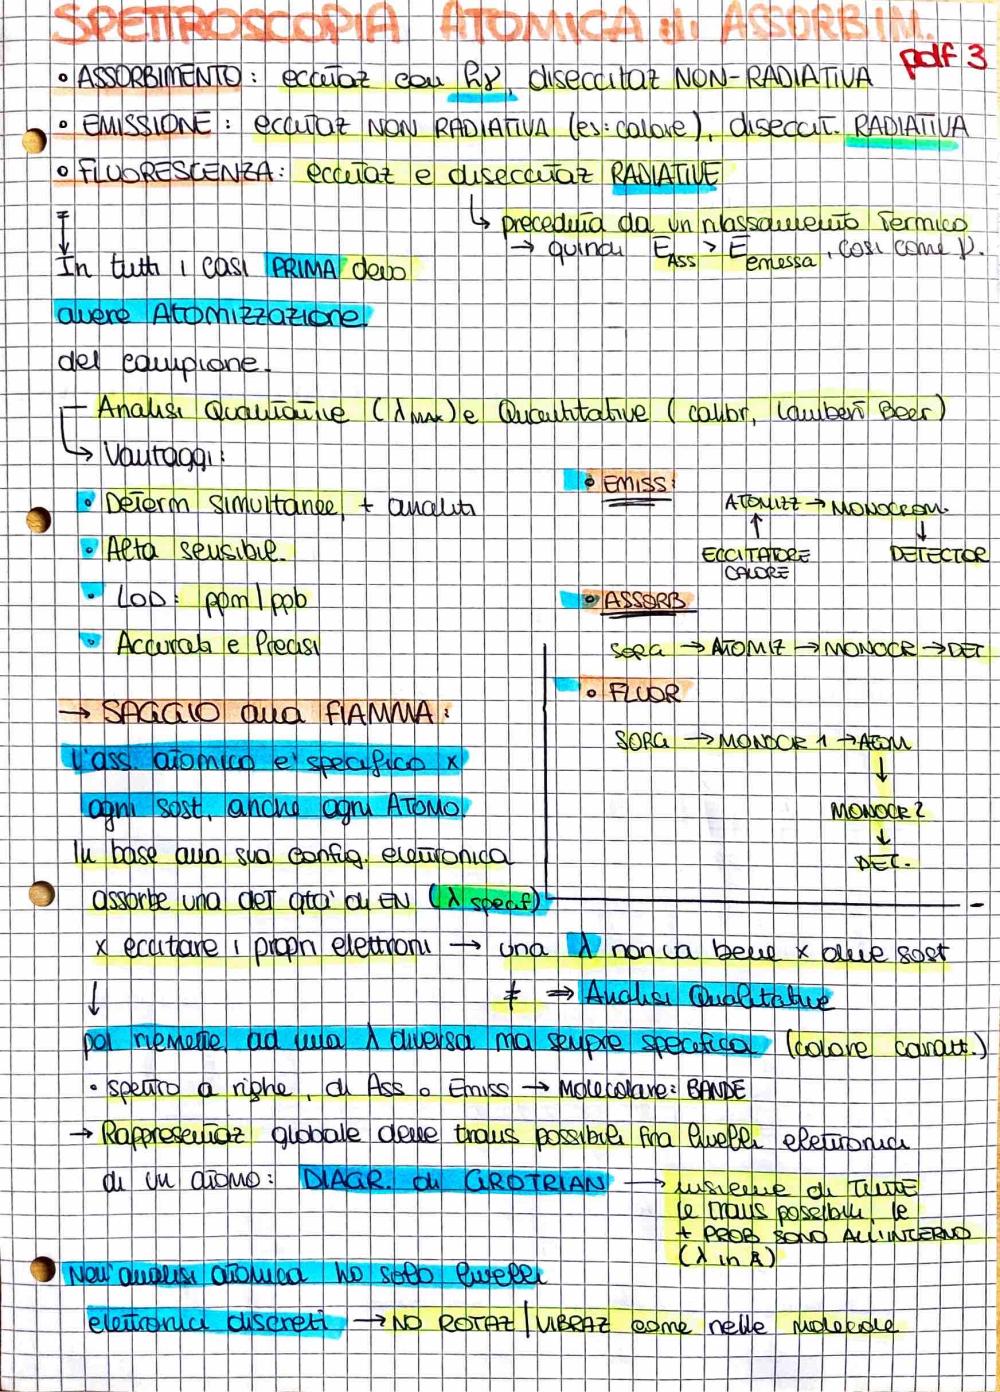 SPETTROSCOPIA ATOMICA di ASSORBIM.
pdf 3
• ASSORBIMENTO: eccitaz con hν, diseccitaz NON-RADIATIVA
• EMISSIONE: eccitaz NON RADIATIVA (es: calore), diseccit. RADIATIVA
• FLUORESCENZA: eccitaz e diseccitaz RADIATIVE
↳ preceduta da un rilassamento termico
→ quindi E ASS > E emessa, così come ν.
≠
↓
In tutti i casi PRIMA devo
avere Atomizzazione
del campione.
Analisi Qualitative (λ MAX) e Quantitative (calibr, Lambert Beer)
↳ Vantaggi:
• Determ simultanee, + analiti
• Alta sensibil.
• LOD: ppm/ppb
• Accurati e Precisi
• EMISS:
ATOMIZZ → MONOCROM.
↑ ↓
ECCITATORE DETECTOR
CALORE
• ASSORB
SORG → ATOMIZ → MONOCR → DET
• FLUOR
SORG → MONOCR 1 → ATOM
↓
MONOCR 2
↓
DET.
→ SAGGIO alla FIAMMA:
L'ass. atomico e' specifico x
ogni sost, anche ogni ATOMO.
In base alla sua config. elettronica
assorbe una det qta' di EN (λ specif)
x eccitare i propri elettroni → una λ non va bene x due sost
≠ ⇒ Analisi Qualitative
↓
poi riemette, ad una λ diversa ma sempre specifica (colore caratt.)
• spettro a righe, di Ass o Emiss → Molecolare: BANDE
→ Rappresentaz globale delle trans possibili fra livelli elettronici
di un atomo: DIAGR. di GROTRIAN → insieme di TUTTE
le trans possibili, le
+ PROB SONO ALL'INTERNO
(λ in Å)
Nell'analisi atomica ho solo livelli
elettronici discreti → NO ROTAZ/VIBRAZ come nelle molecole